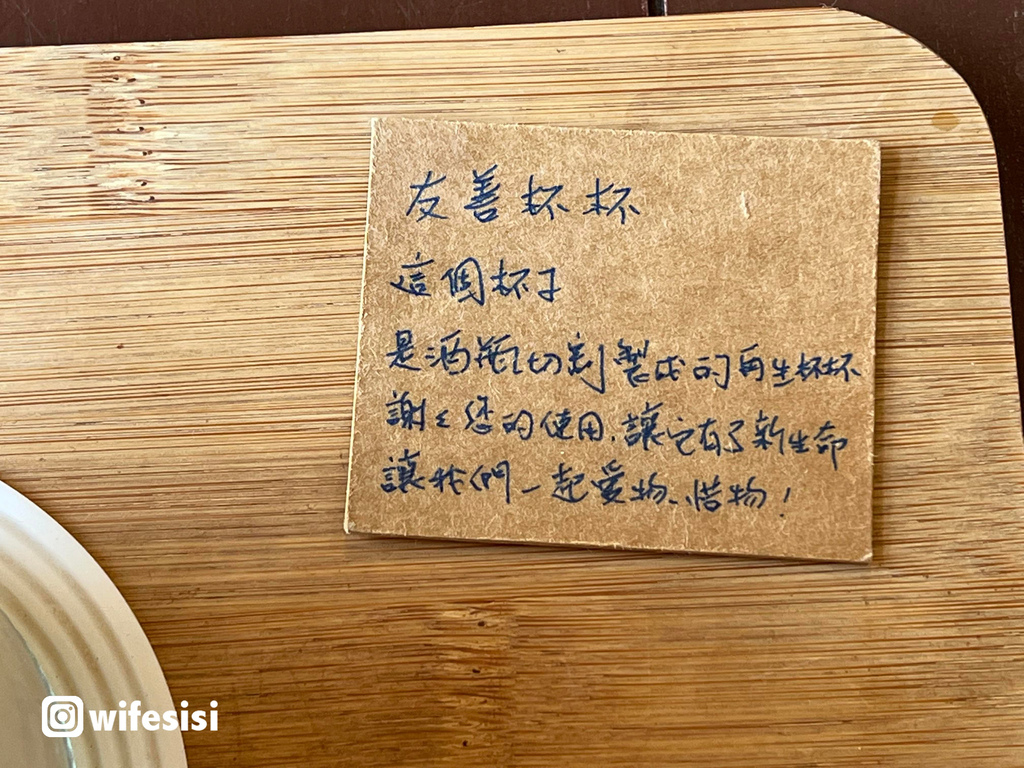 友善杯杯
這個杯子
是酒瓶切割製成的再生杯杯
謝々您的使用,讓它有了新生命
讓我們一起愛物、惜物!
wifesisi